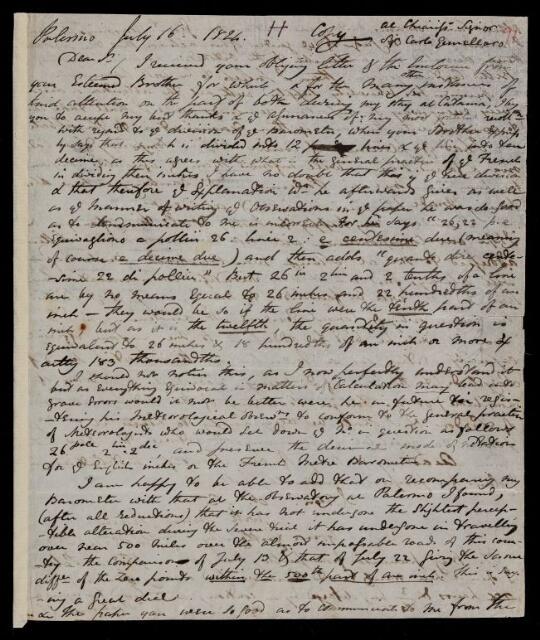 Palermo July 16 - 1824. Copy al Chiariss. Signor
Sr Carlo Gemellaro
Dear Sr, I received your obliging letter & the inclosure from
your Esteemed Brother for which & for the many other instances of
kind attention on the part of both during my stay at Catania, I beg
you to accept my best thanks &
with regard to ye division of ye Barometer, when your Brother
by says that inch is divided into 12 lines & ye line into ten
decime, as this agrees with what is the general practice of ye French
in dividing their inches I have no doubt that this is ye true division
& that therefore ye Explanation wh he afterwards gives as well
as ye manner of writing ye Observations in ye paper he was so good
as to communicate to me is incorrect. For he says "26,22 p.e
equivagliono a pollici 26: linee 2: e centesime due (meaning
of course e decime due) and then adds "quanto dire
sime 22 di pollici" But 26 in 2 lin and 2 tenths of a line
are by no means equal to 26 inches and 22 hundredths of an
inch - they would be so if the line were the tenth part of an
inch, but as it is the twelfth, the quantity in question is
equivalent to 26 inches & 18 hundredths of an inch or more ex
actly 183 thousandths.
I should not notice this, as I now perfectly understand it
but as everything equivocal in matters of Calculation may lead into
grave errors would it not be better were he in future in regis-
tering his Meteorological Observns to conform to the general practice
of Meteorologists who would set down ye No in question as follows
26 pole 2 lin 2 dec and preserve the decimal mode of notation
for ye English inches or the French Metre Barometer
I am happy to be able to add that on recomparing my
Barometer with that at the Observatory at Palermo I found,
(after all reductions) that it has not undergone the slightest percep-
tible alteration during the severe trial it has undergone in travelling
over near 500 miles over the almost impassable roads of this coun-
try the Comparison of July 13 & that of July 22 giving the same
diffce of the zero points within the 500th part of an inch. This is say-
ing a great deal
the paper you were so good as to communicate to me from the